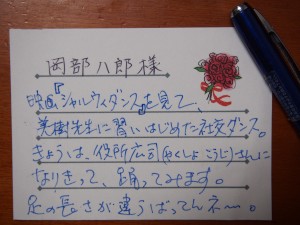 岡部八郎様
映画『シャルウィダンス』を見て、
美樹先生に習いはじめた社交ダンス。
きょうは、役所広司(やくしょこうじ)さんに
なりきって、踊ってみます。
足の長さが違うばってんネ～。